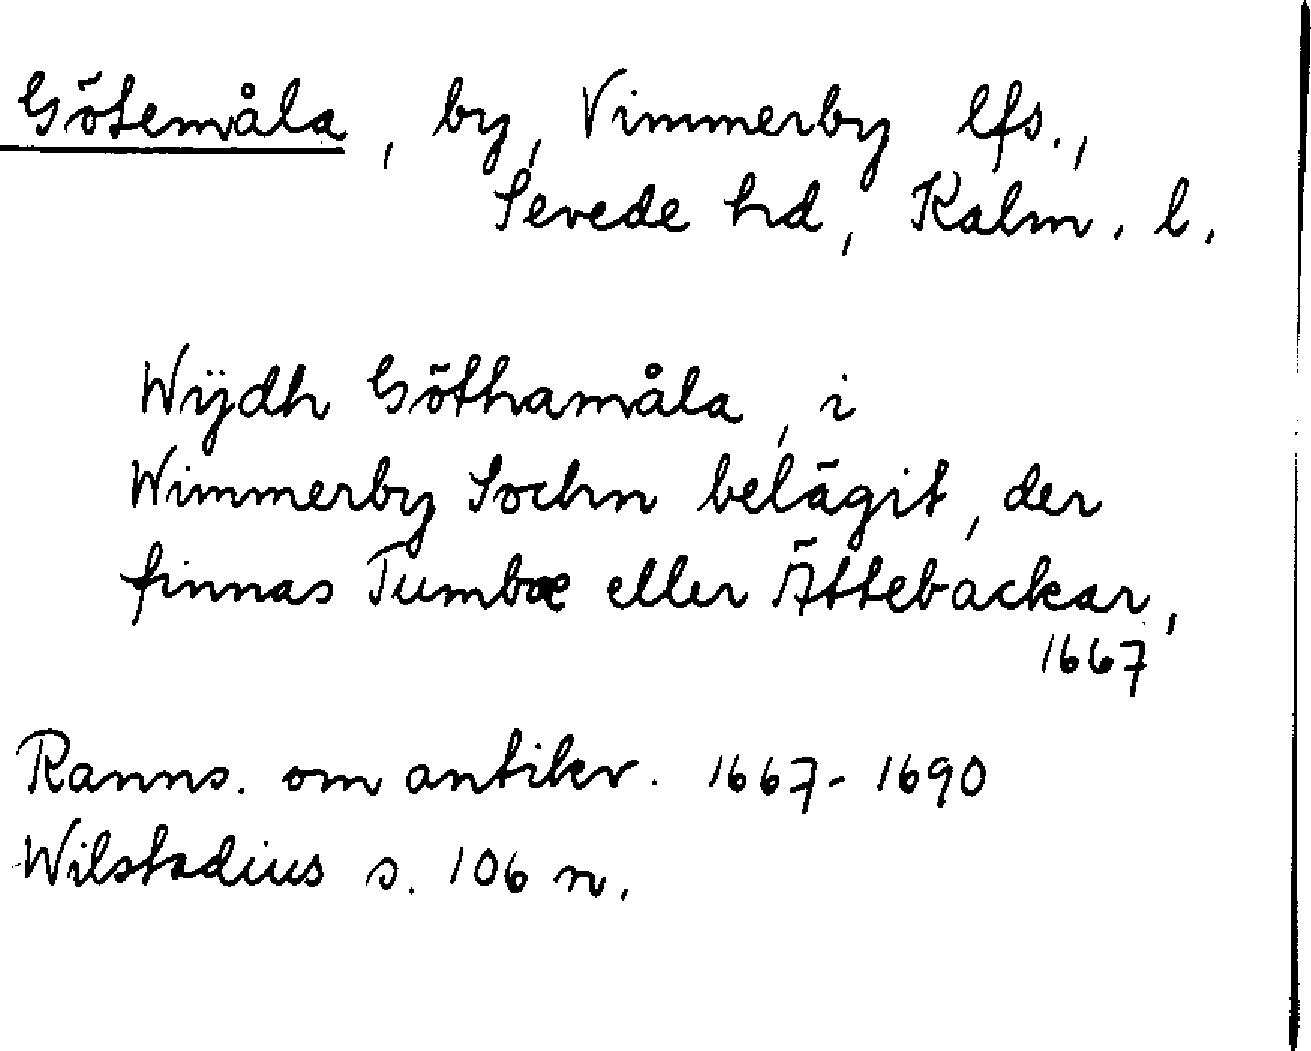 Götemåla, by, Vimmerby lfs.,
Sevede hd, Kalm. l.
Wÿdh Göthamåla, i
Wimmerby Sochn belägit, der
finnas Tumbæ eller Ättebackar,
1667
Ranns. om antikv. 1667-1690
Wilstadius s. 106 n.